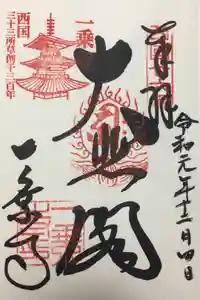 奉拝
令和元年十二月四日
大悲閣
一乗寺
一乗
西国
三十三所草創千三百年